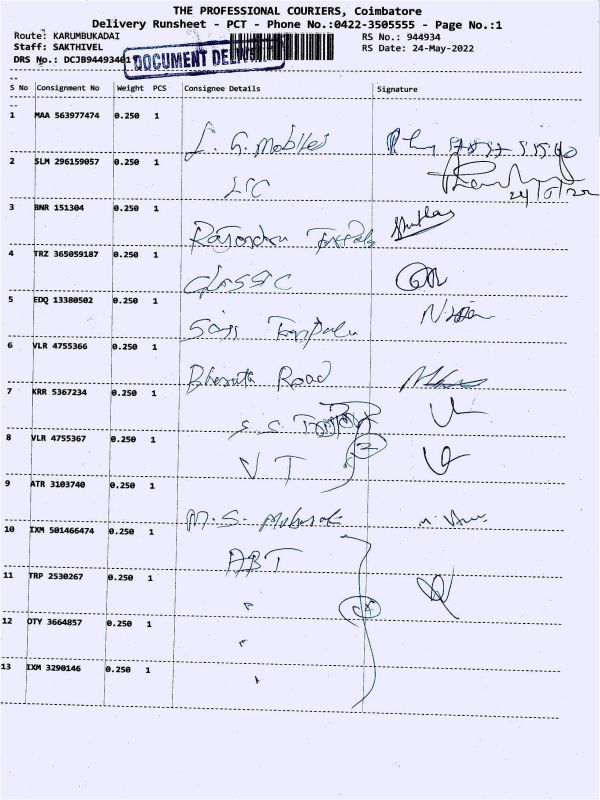 THE PROFESSIONAL COURIERS, Coimbatore
Delivery Runsheet - PCT - Phone No.:0422-3505555 - Page No.:1
Route: KARUMBUKADAI RS No.: 944934
Staff: SAKTHIVEL RS Date: 24-May-2022
DRS No.: DCJB94493401
DOCUMENT
S No Consignment No Weight PCS Consignee Details Signature
1 MAA 563977474 0.250 1 L. G. Mobiles
2 SLM 296159057 0.250 1 LIC
3 BNR 151304 0.250 1
4 TRZ 365059187 0.250 1 classic
5 EDQ 13380502 0.250 1
6 VLR 4755366 0.250 1 Road
7 KRR 5367234 0.250 1 S. S.
8 VLR 4755367 0.250 1 V T 2
9 ATR 3103740 0.250 1 M. S.
10 IXM 501466474 0.250 1 ABT
11 TRP 2530267 0.250 1 "
12 OTY 3664857 0.250 1 "
13 IXM 3290146 0.250 1 "